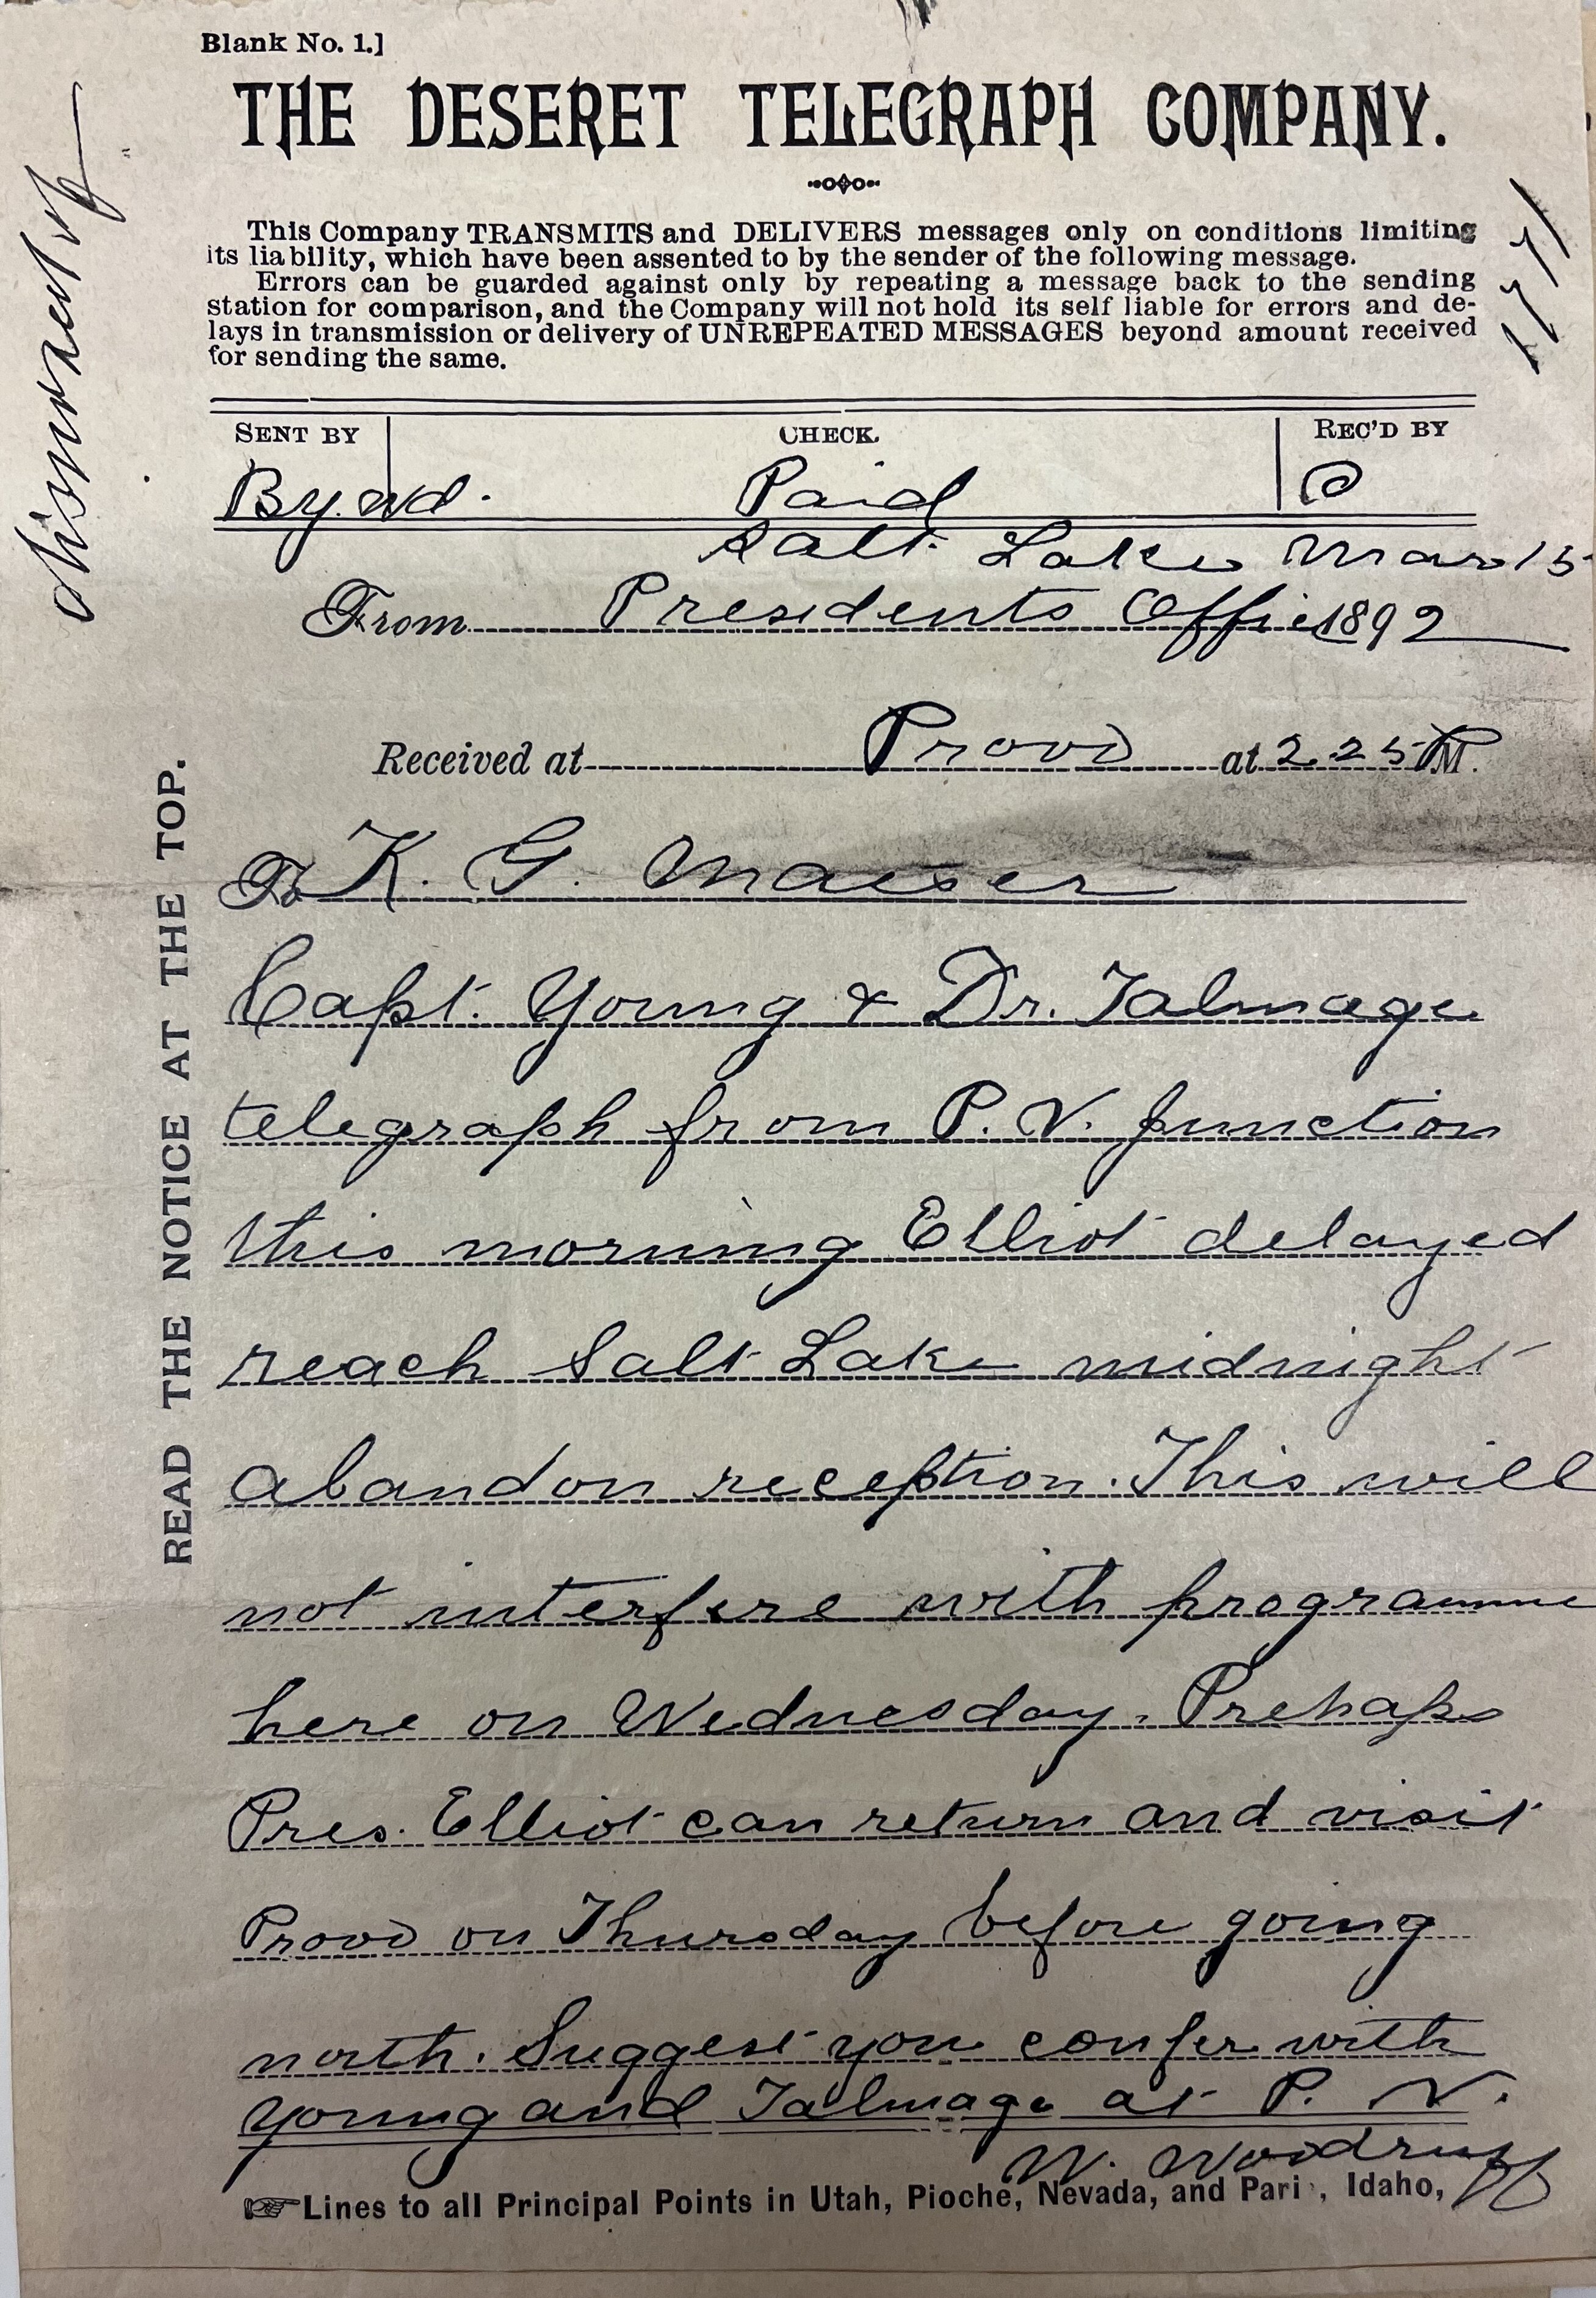 Blank No. 1.]
THE DESERET TELEGRAPH COMPANY.
This Company TRANSMITS and DELIVERS messages only on conditions limiting
its liability, which have been assented to by the sender of the following message.
Errors can be guarded against only by repeating a message back to the sending
station for comparison, and the Company will not hold its self liable for errors and de-
lays in transmission or delivery of UNREPEATED MESSAGES beyond amount received
for sending the same.
SENT BY CHECK. REC'D BY
By. Paid
Salt Lake Mar 15
From Presidents Office 1892
Received at Provo at 2.25 P M.
To K. G. Maeser
Capt. Young & Dr. Talmage
telegraph from P. V. Junction
this morning Elliot delayed
reach Salt Lake midnight
abandon reception. This will
not interfere with programme
here on Wednesday. Prehaps
Pres. Elliot can return and visit
Provo on Thursday before going
north. Suggest you confer with
Young and Talmage at P. V.
W. Woodruff
Lines to all Principal Points in Utah, Pioche, Nevada, and Pari , Idaho,
READ THE NOTICE AT THE TOP.